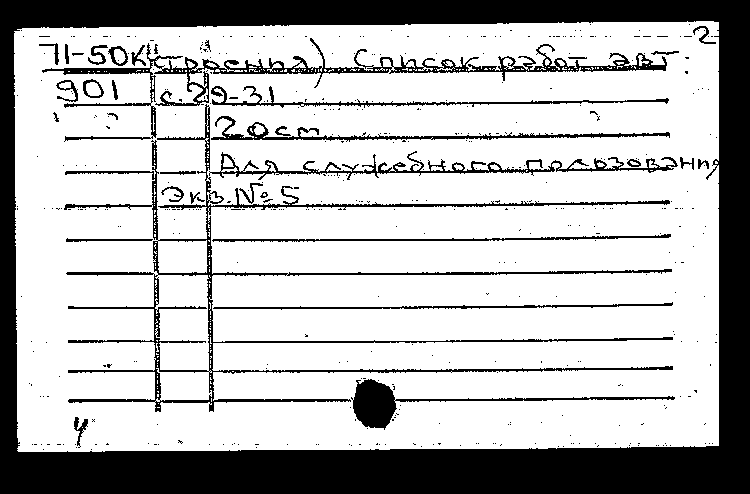 2
71-50к строения) Список работ авт.:
901 с.29-31.
20 см
Для служебного пользования
Экз. № 5
4